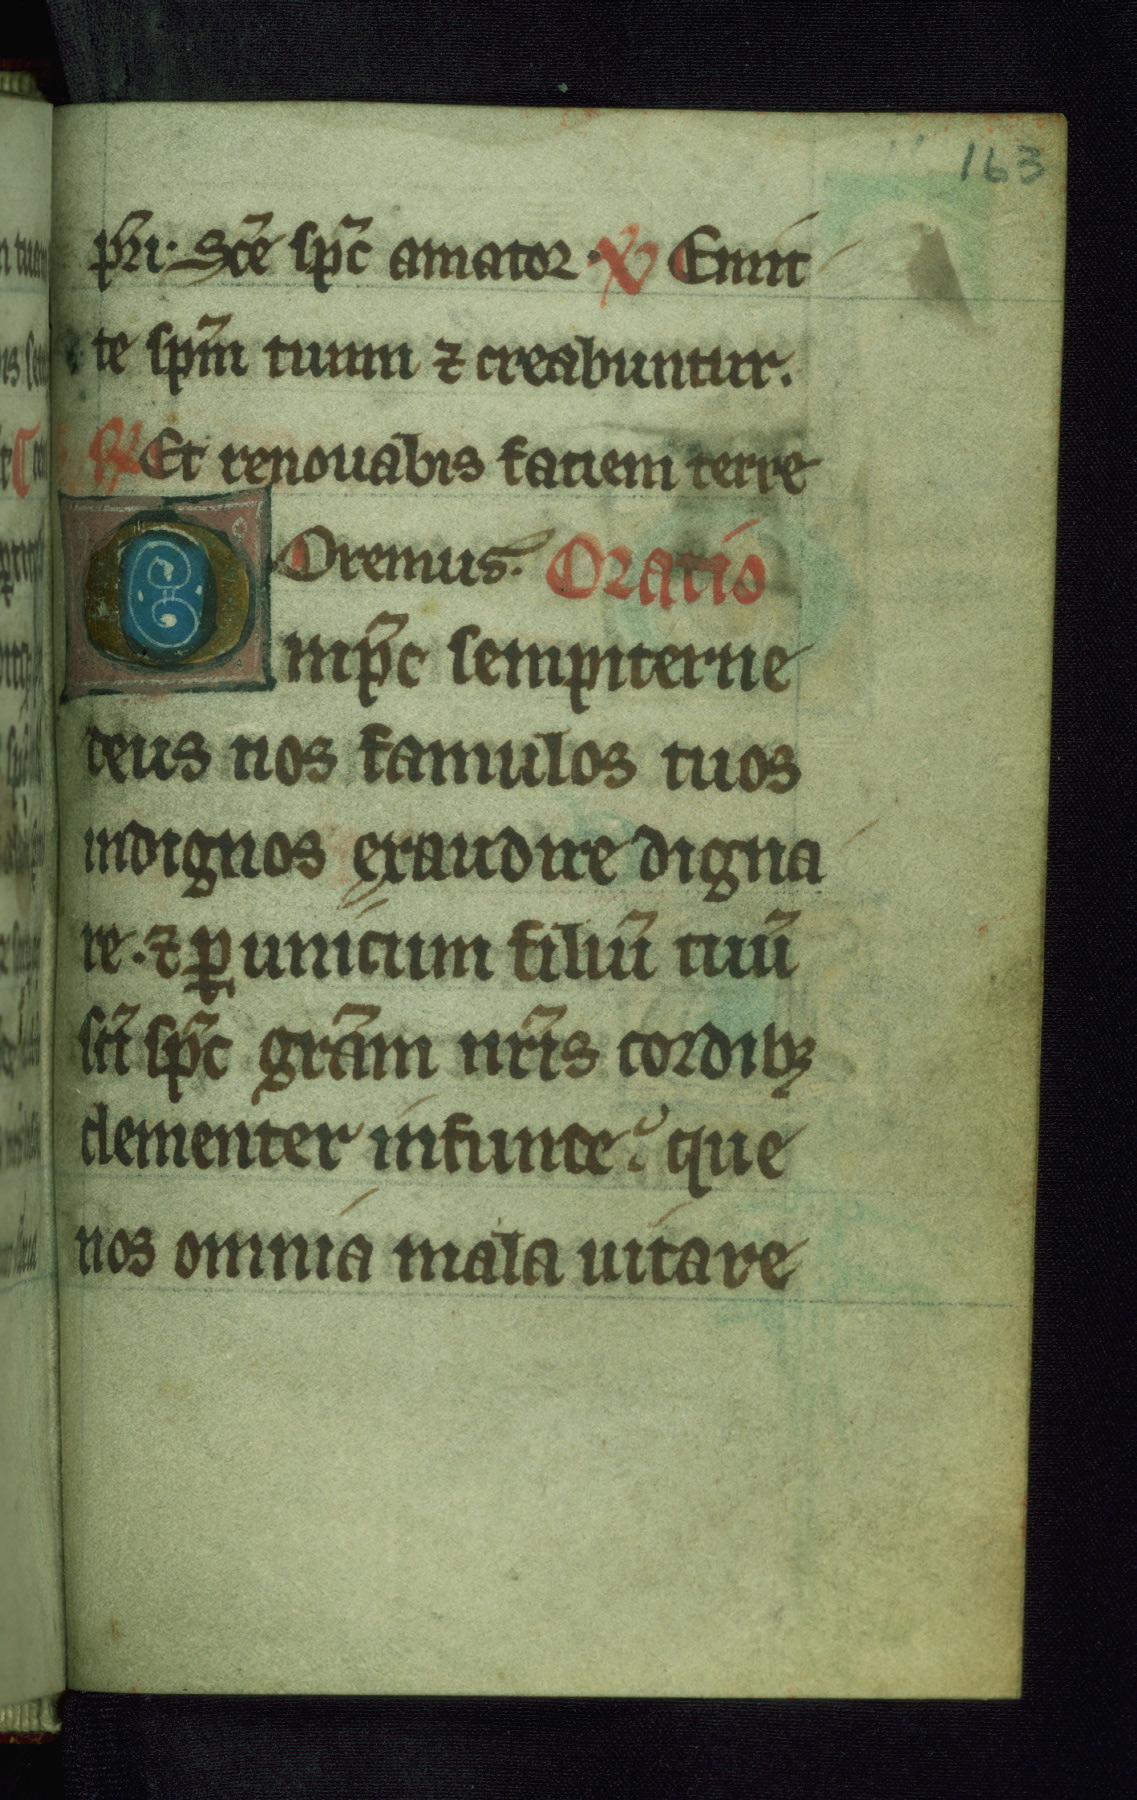 163
pr̃i. Sc̃e sp̃c amator. ℣ Emit
te sp̃m tuum ⁊ creabuntur.
℟ Et renouabis faciem terre
Oremus. Oratio
Omp̃c sempiterne
deus nos famulos tuos
indignos exaudire digna
re. ⁊ ꝑ unicum filiũ tuũ
sc̃i sp̃c gr̃am nr̃is cordibꝫ
clementer infunde. que
nos omnia mala uitare